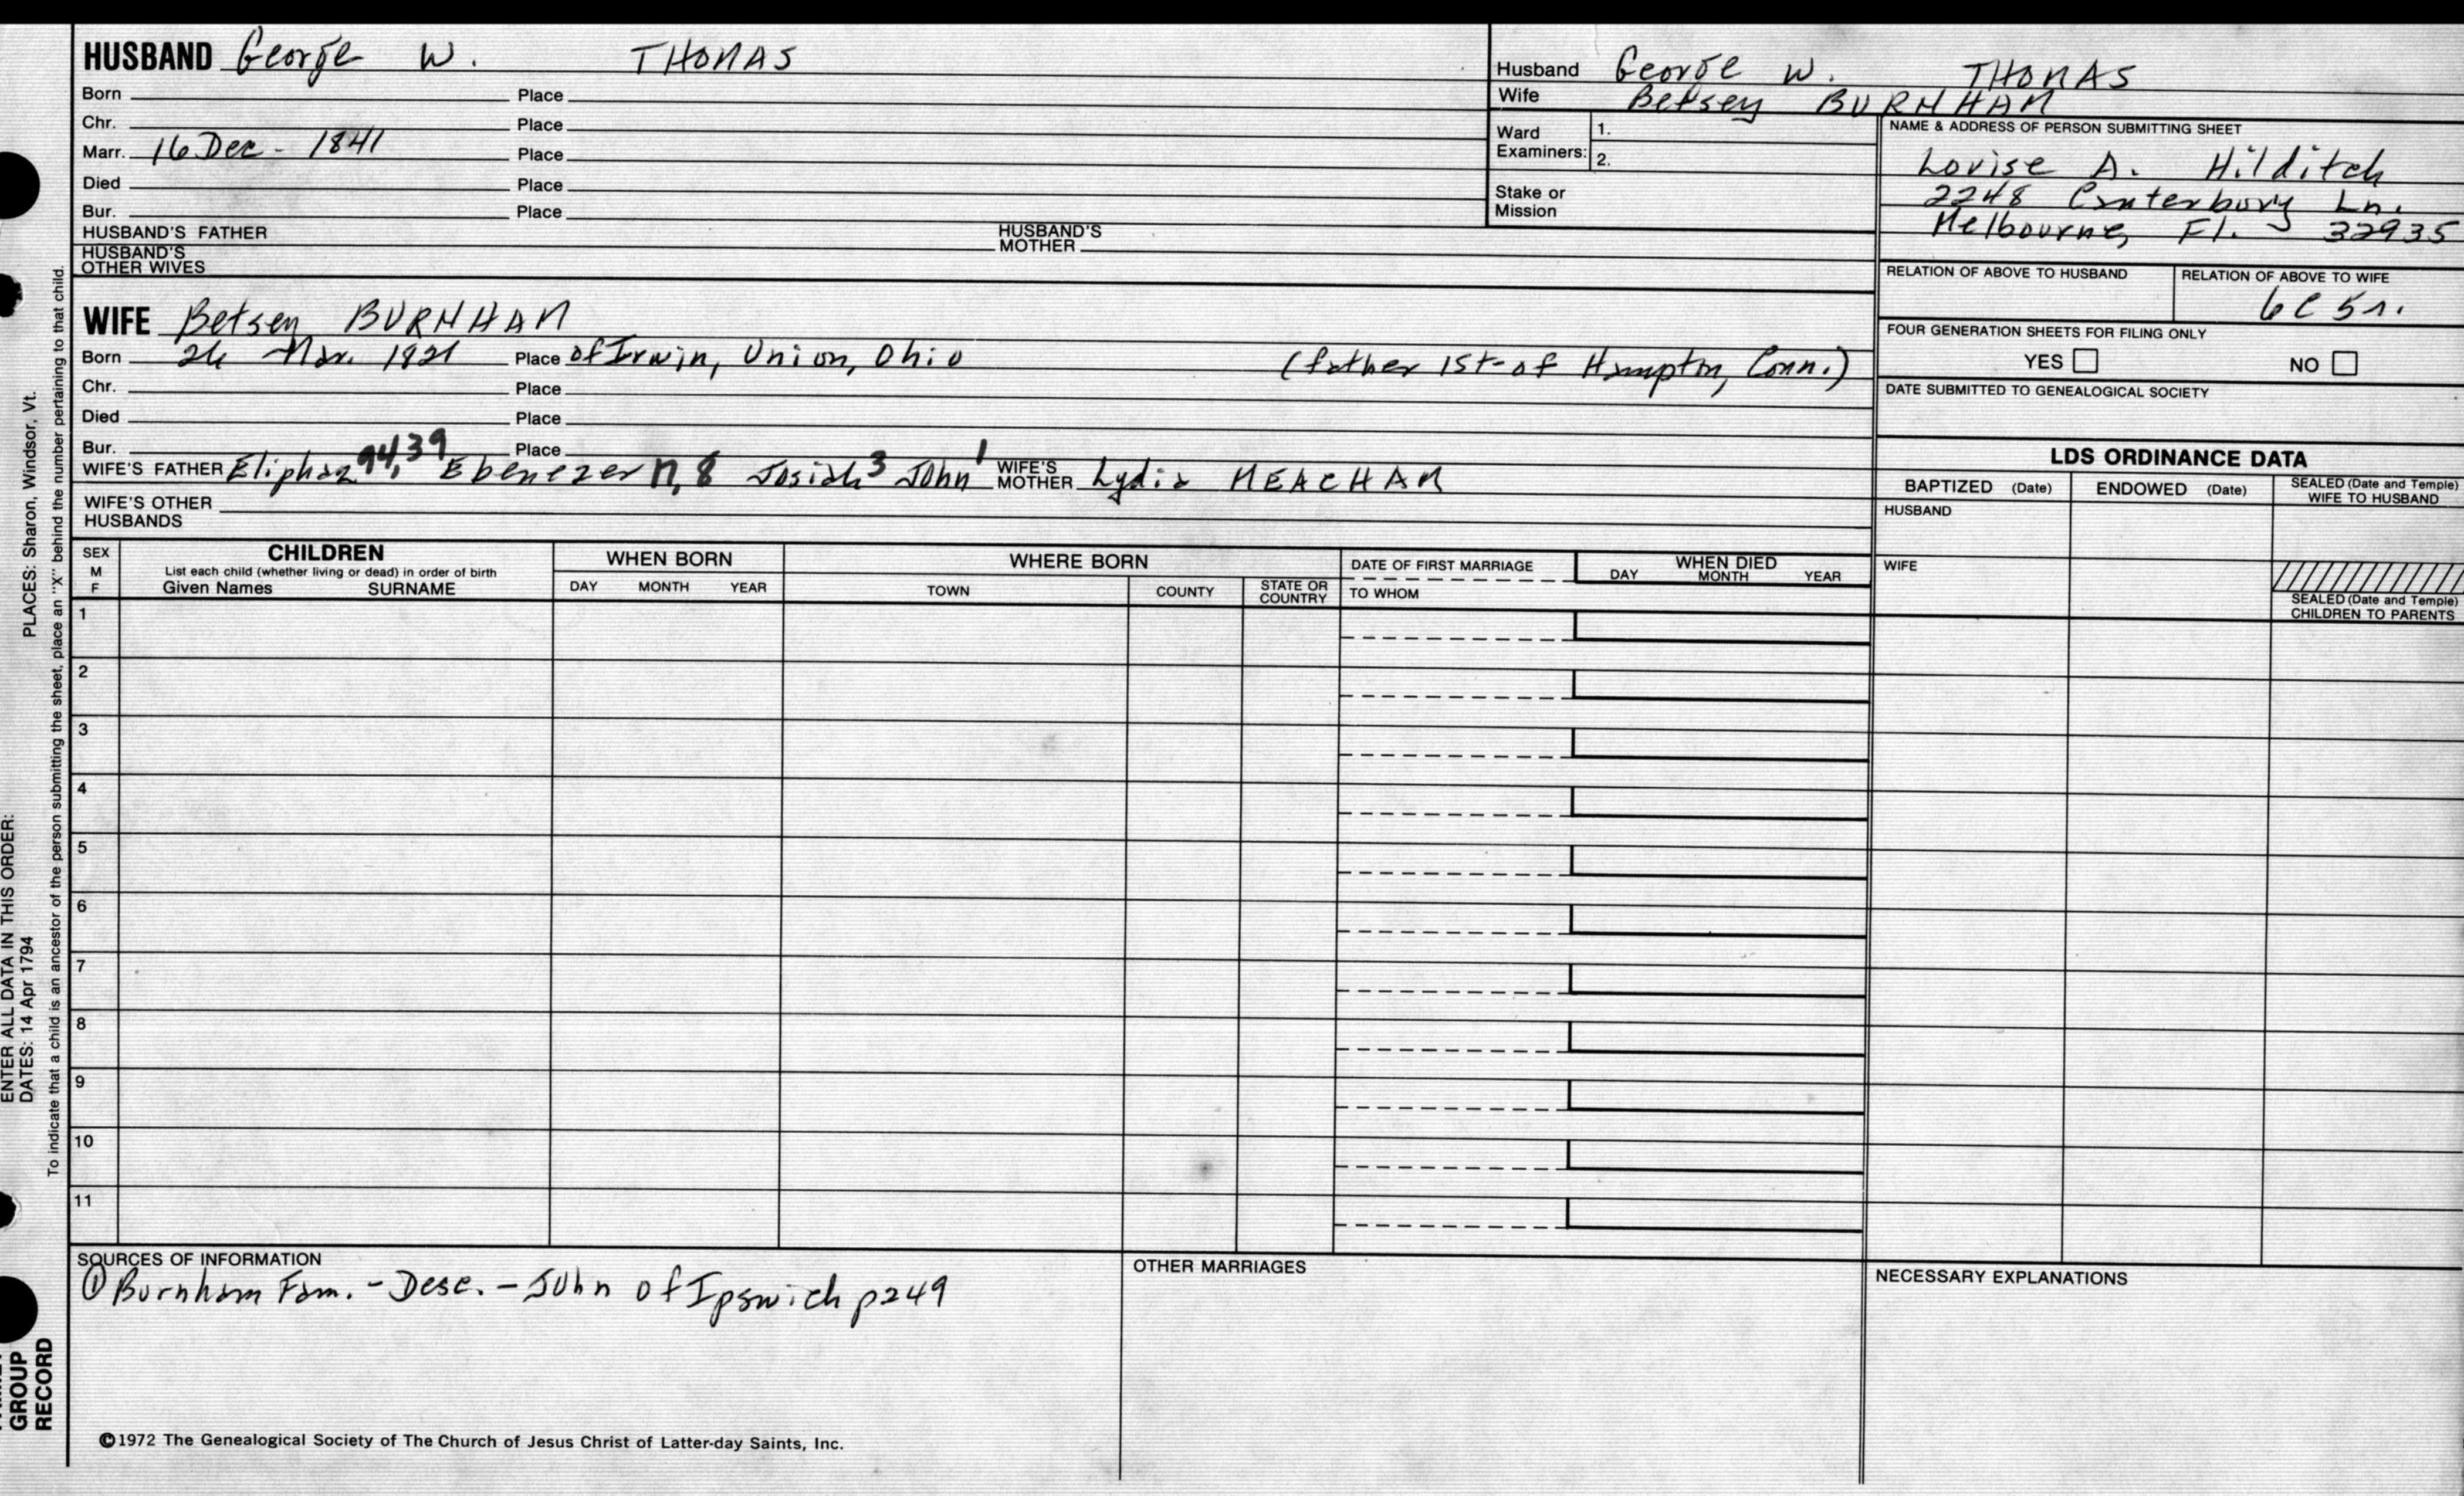 HUSBAND George W. THOMAS
Born Place
Chr. Place
Marr. 16 Dec - 1841 Place
Died Place
Bur. Place
HUSBAND'S FATHER HUSBAND'S MOTHER
HUSBAND'S OTHER WIVES
Husband George W. THOMAS
Wife Betsey BURNHAM
Ward Examiners: 1.
2.
Stake or Mission
NAME & ADDRESS OF PERSON SUBMITTING SHEET
Louise A. Hilditch
2248 Canterbury Ln.
Melbourne, Fl. 32935
RELATION OF ABOVE TO HUSBAND RELATION OF ABOVE TO WIFE
6C5r.
FOUR GENERATION SHEETS FOR FILING ONLY
YES NO
DATE SUBMITTED TO GENEALOGICAL SOCIETY
WIFE Betsey BURNHAM
Born Mar. 1821 Place of Irwin, Union, Ohio (father 1st-of Hampton, Conn.)
Chr. Place
Died Place
Bur. Place
WIFE'S FATHER Eliphaz 94,39 Ebenezer 17,8 Josiah 3 John 1 WIFE'S MOTHER Lydia MEACHAM
WIFE'S OTHER HUSBANDS
LDS ORDINANCE DATA
BAPTIZED (Date) ENDOWED (Date) SEALED (Date and Temple) WIFE TO HUSBAND
HUSBAND
WIFE
SEALED (Date and Temple) CHILDREN TO PARENTS
SEX M F
CHILDREN
List each child (whether living or dead) in order of birth
Given Names SURNAME
WHEN BORN
DAY MONTH YEAR
WHERE BORN
TOWN COUNTY STATE OR COUNTRY
DATE OF FIRST MARRIAGE
TO WHOM
WHEN DIED
DAY MONTH YEAR
1
2
3
4
5
6
7
8
9
10
11
SOURCES OF INFORMATION
① Burnham Fam. - Desc. - John of Ipswich p249
OTHER MARRIAGES
NECESSARY EXPLANATIONS
©1972 The Genealogical Society of The Church of Jesus Christ of Latter-day Saints, Inc.
ENTER ALL DATA IN THIS ORDER:
DATES: 14 Apr 1794 PLACES: Sharon, Windsor, Vt.
To indicate that a child is an ancestor of the person submitting the sheet, place an "X" behind the number pertaining to that child.
GROUP
RECORD